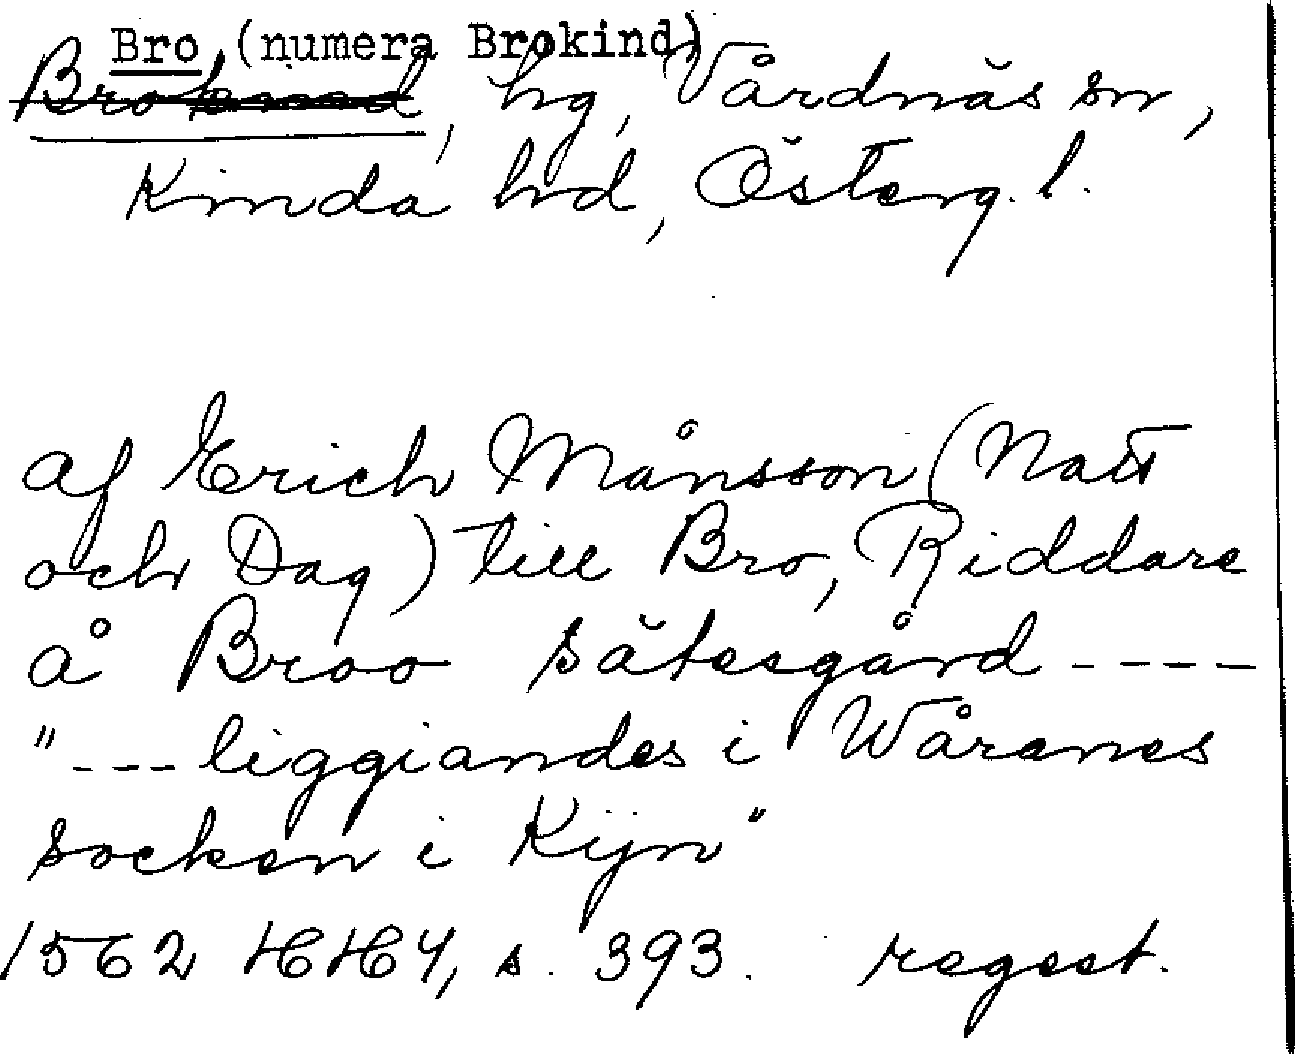 Bro (numera Brokind)
Brokind, hg, Vårdnäs sn,
Kinda hd, Österg. l.
af Erich Månsson (Natt
och Dag) till Bro, Riddare
å Broo sätesgård ----
"---liggiandes i Wårenes
socken i Kijn"
1562 HH 4, s. 393. regest.